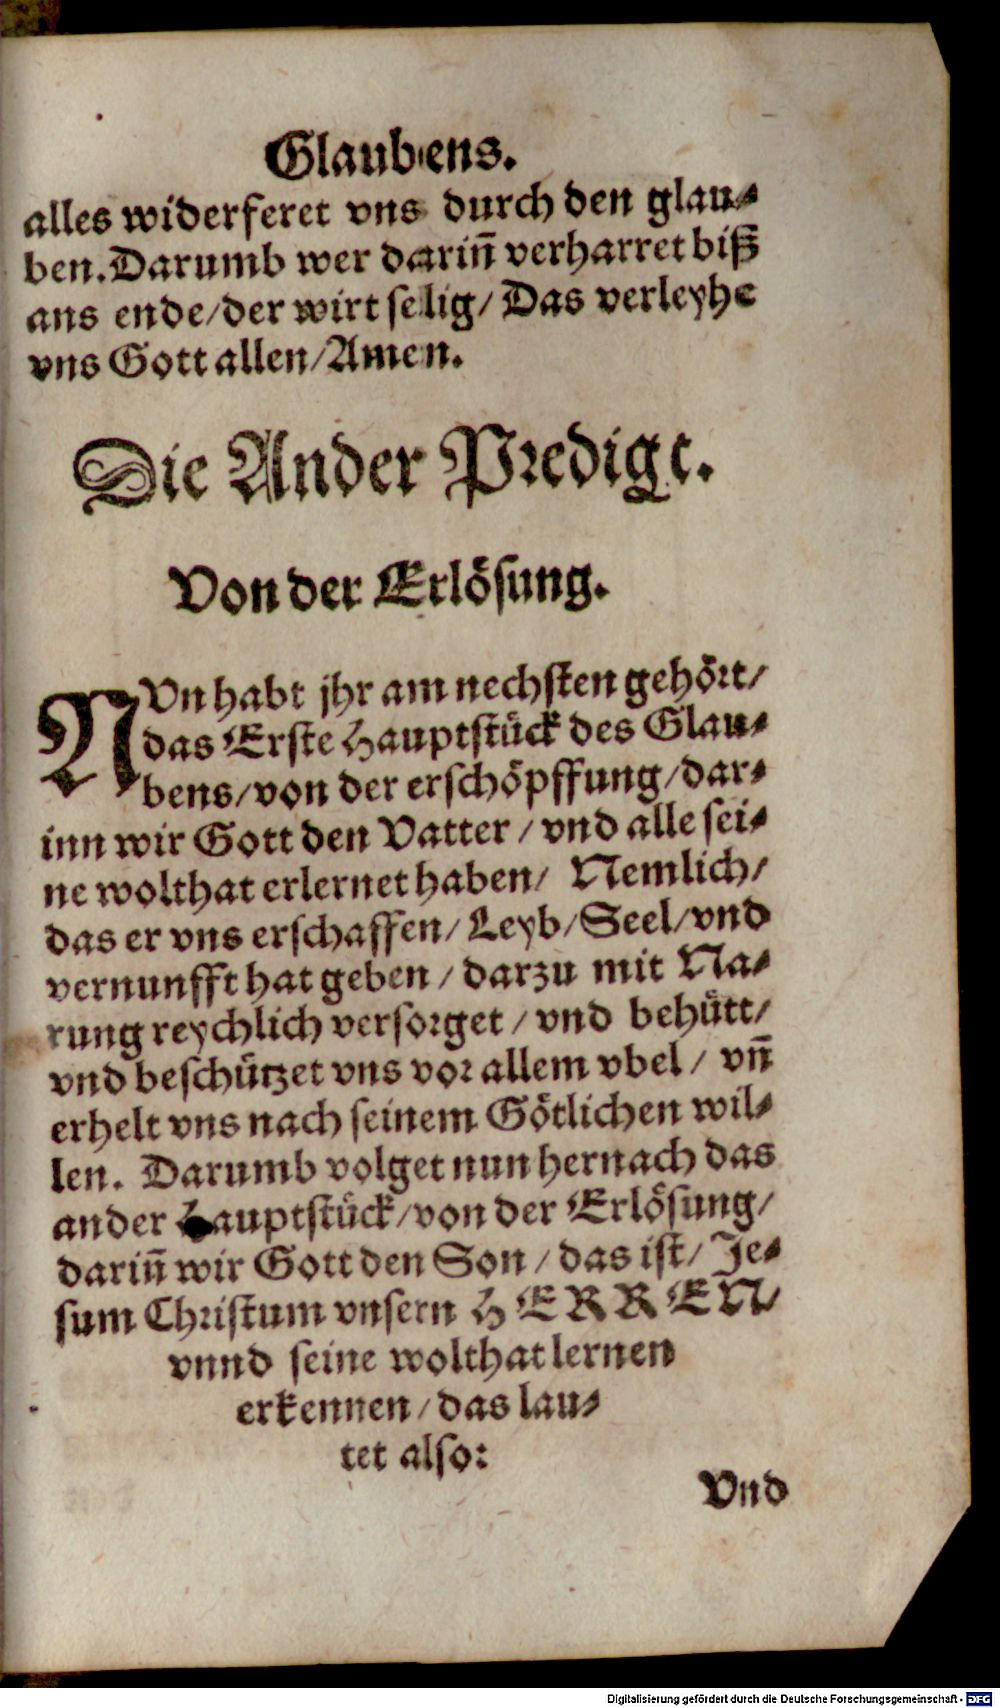 Glaubens.
alles widerferet vns durch den glau⸗
ben. Darumb wer darin̄ verharret biß
ans ende/der wirt selig/ Das verleyhe
vns Gott allen/Amen.
Die Ander Predigt.
Von der Erlösung.
NVn habt jhr am nechsten gehört/
das Erste Hauptstück des Glau⸗
bens/von der erschöpffung/dar⸗
inn wir Gott den Vatter/ vnd alle sei⸗
ne wolthat erlernet haben/ Nemlich/
das er vns erschaffen/ Leyb/Seel/vnd
vernunfft hat geben/ darzu mit Na⸗
rung reychlich versorget/ vnd behütt/
vnd beschützet vns vor allem vbel/ vn̄
erhelt vns nach seinem Götlichen wil⸗
len. Darumb volget nun hernach das
ander Hauptstück/von der Erlösung/
darin̄ wir Gott den Son/ das ist/ Je⸗
sum Christum vnsern HERREN/
vnnd seine wolthat lernen
erkennen/das lau⸗
tet also:
Vnd
Digitalisierung gefördert durch die Deutsche Forschungsgemeinschaft - DFG